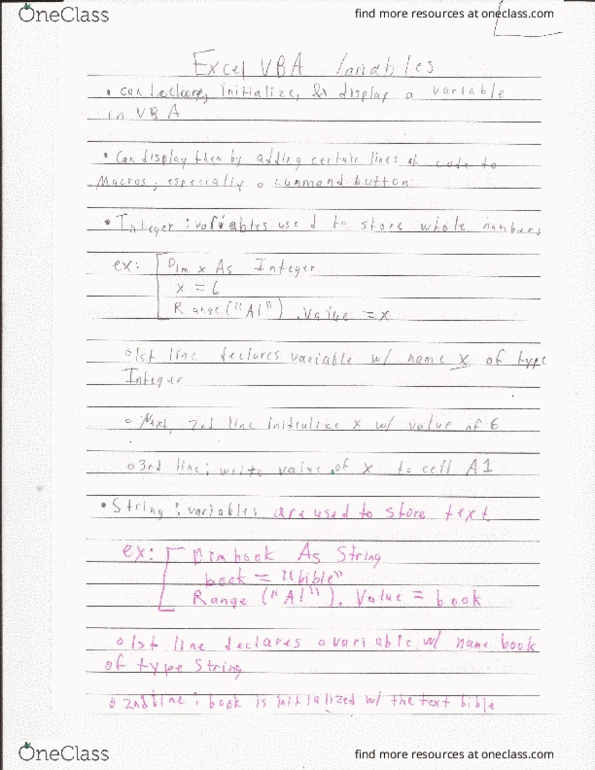 OneClass
find more resources at oneclass.com
Excel VBA Variables
• can declare, initialize, & display a variable
in VBA
• Can display them by adding certain lines of code to
Macros; especially a command button
• Integer: variables used to store whole numbers
ex: Dim x As Integer
x = 6
Range("A1").Value = x
o 1st line declares variable w/ name x of type
Integer
o Next, 2nd line initialize x w/ value of 6
o 3rd line: write value of x to cell A1
• String: variables are used to store text
ex: Dim book As String
book = "bible"
Range("A1").Value = book
o 1st line declares a variable w/ name book
of type String
o 2nd line: book is initialized w/ the text bible
OneClass
find more resources at oneclass.com